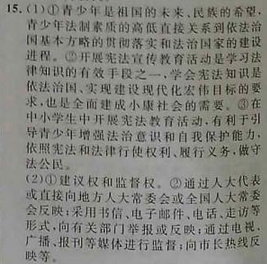 15.(1)①青少年是祖国的未来、民族的希望,
青少年法制素质的高低直接关系到依法治
国基本方略的贯彻落实和法治国家的建设
进程。②开展宪法宣传教育活动是学习法
律知识的有效手段之一,学会宪法知识是
依法治国、实现建设现代化宏伟目标的要
求,也是全面建成小康社会的需要。③在
中小学生中开展宪法教育活动,有利于引
导青少年增强法治意识和自我保护能力,
依照宪法和法律行使权利、履行义务,做守
法公民。
(2)①建议权和监督权。②通过人大代表
或直接向地方人大常委会或全国人大常委
会反映;采用书信、电子邮件、电话、走访等
形式,向有关部门举报或反映;通过电视、
广播、报刊等媒体进行监督;向市长热线反
映等。